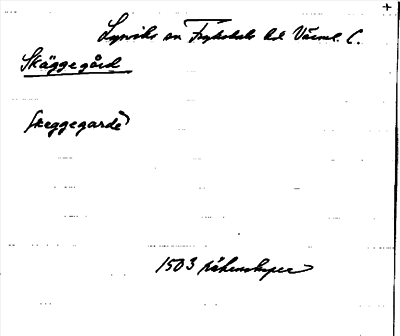 Lysviks sn Fryksdals hd Värml. l.
Skäggegård
skeggegarde
1503 räkenskaper